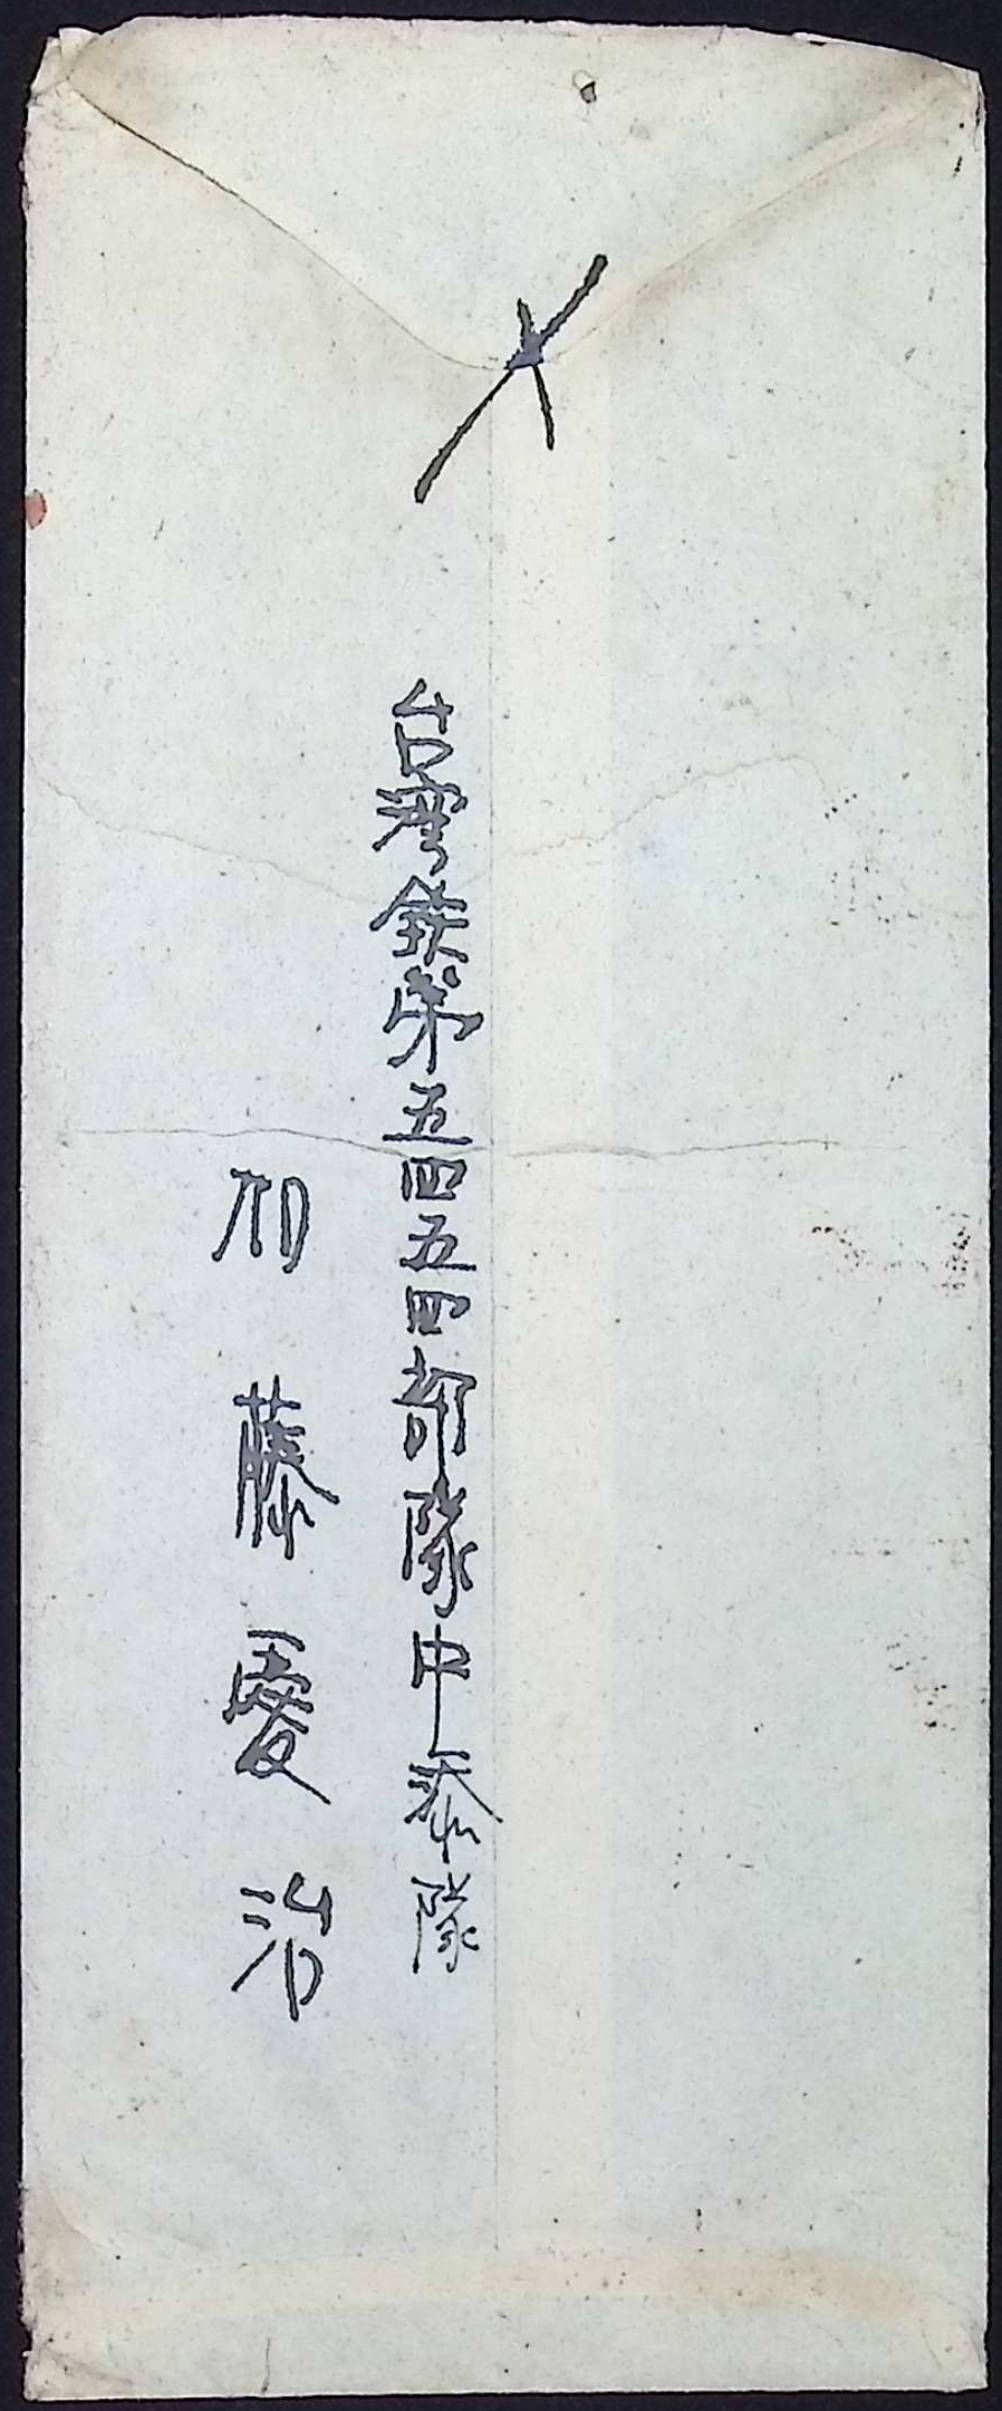 台湾鉄第五四五四部隊中泰隊
加藤愛治